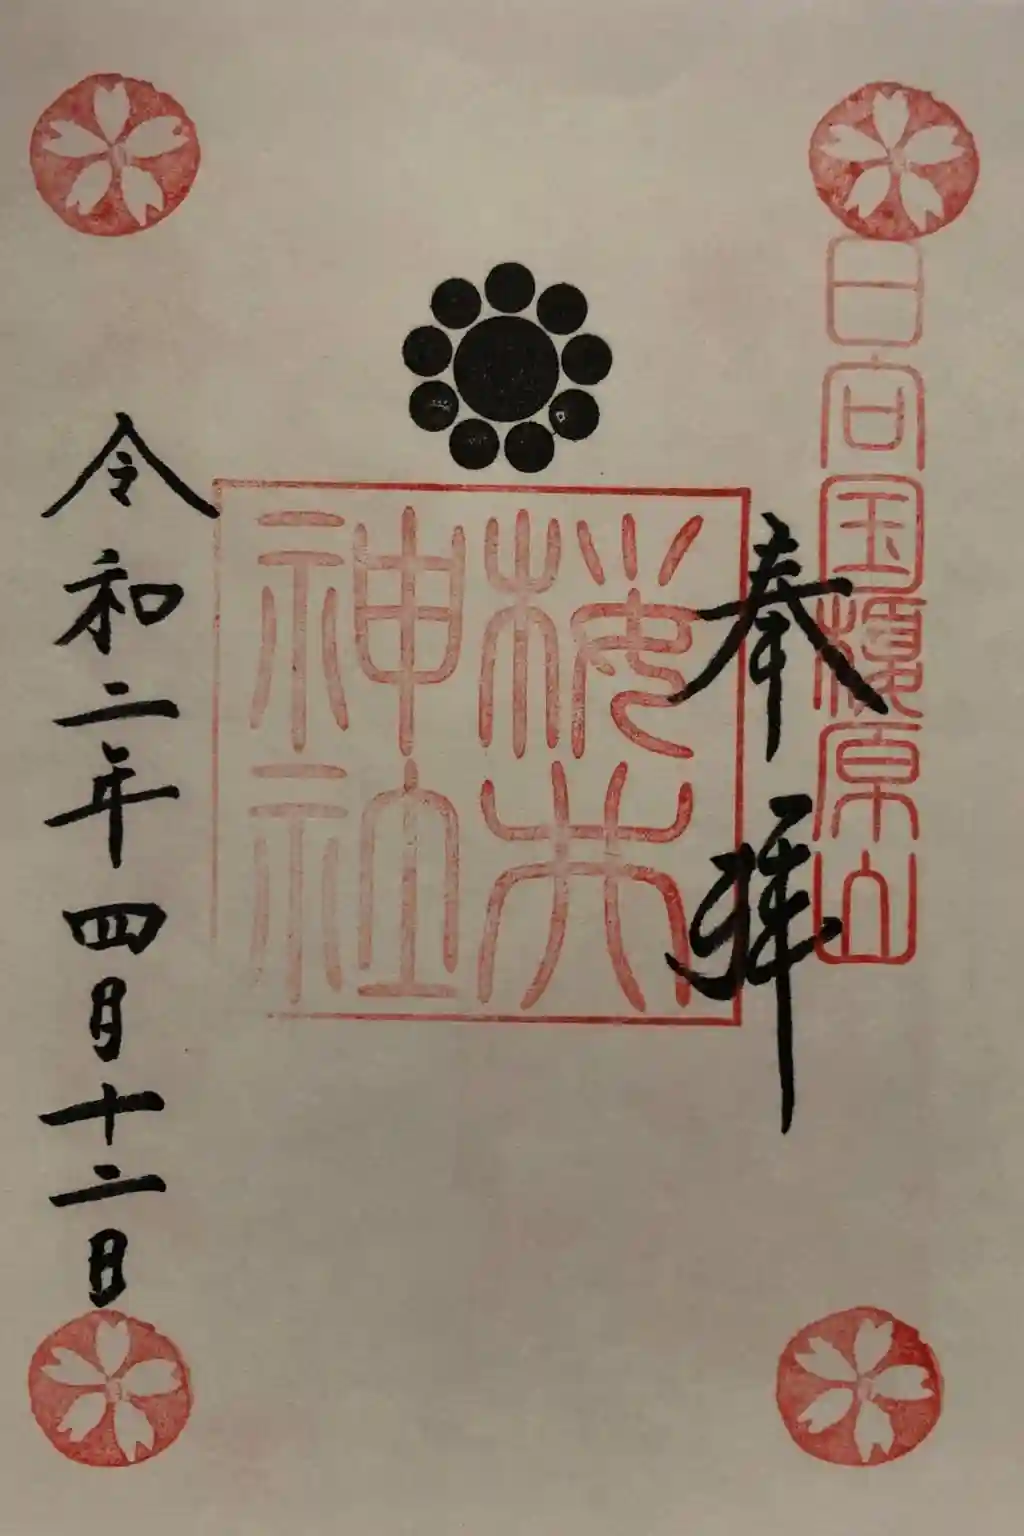 日向国原山
奉拝
桜井
神社
令和二年四月十二日